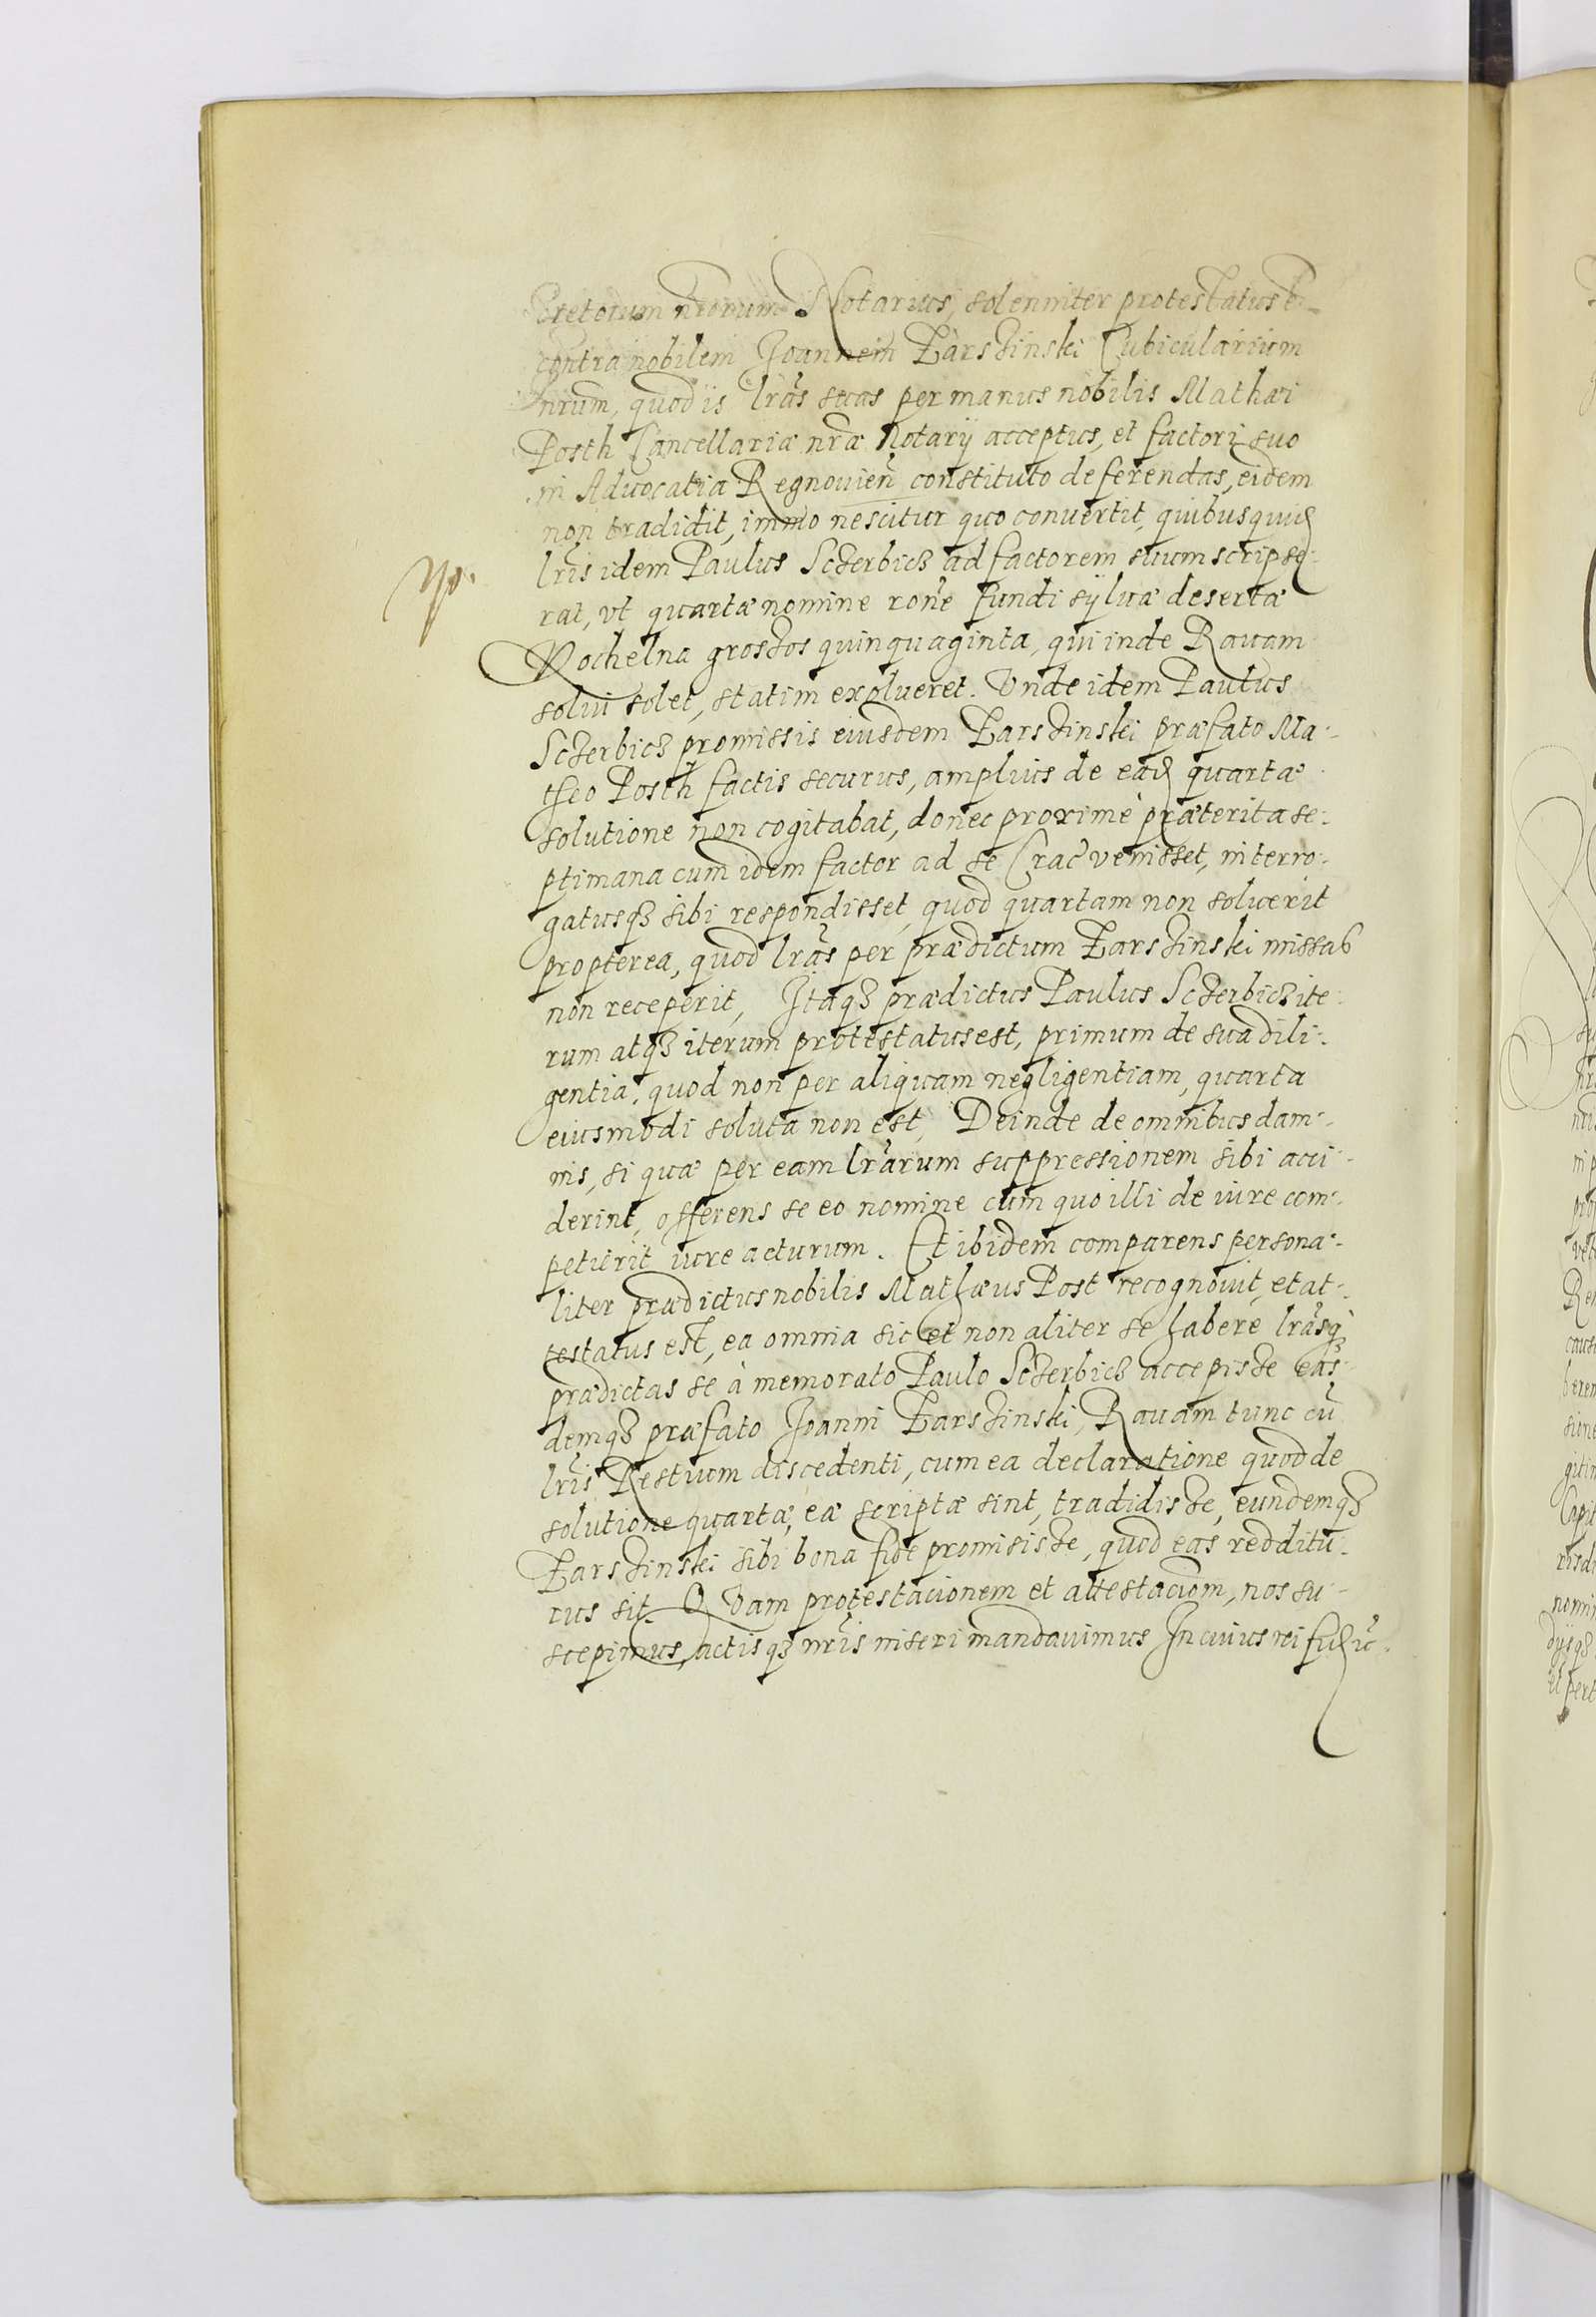 cretorum nrorum Notarius, solenniter protestatus e-
contra nobilem Joannem Zarszinski Cubicularium
nrum, quod is lras suas per manus nobilis Mathæi
Posth Cancellariæ nræ Notarij acceptas, et factori suo
in Aduocatia Regnouien constituto deferendas, eidem
non tradidit, immo nescitur quo conuertit, quibusquid
lris idem Paulus Sczerbicz ad factorem suum scripse-
rat, vt quartæ nomine rone fundi syluæ desertæ
Rochelna groszos quinquaginta, qui inde Rauam
solui solet, statim exolueret. Vnde idem Paulus
Sczerbicz promissis eiusdem Zarszinski præfato Ma-
theo Posth factis securus, amplius de ead quartæ
solutione non cogitabat, donec proximè præterita se-
ptimana cum idem factor ad se Crac venisset, interro-
gatusq3 sibi respondisset, quod quartam non soluerit
propterea, quod lras per prædictum Zarszinski missas
non receperit, Itaq3 prædictus Paulus Sczerbicz ite-
rum atq3 iterum protestatus est, primum de sua dili-
gentia, quod non per aliquam negligentiam, quarta
eiusmodi soluta non est, Deinde de omnibus dam-
nis, si quæ per eam lrarum suppressionem sibi acci-
derint, offerens se eo nomine cum quo illi de iure com-
petierit iure acturum. Et ibidem comparens persona-
liter prædictus nobilis Mathæus Post recognouit, et at-
testatus est, ea omnia sic et non aliter se habere lrasq3
prædictas se à memorato Paulo Sczerbicz accepisse eas-
demq3 præfato Joanni Zarszinski, Rauam tunc cu
lris Restium discedenti, cum ea declaratione quod de
solutione quartæ, eæ scriptæ sint, tradidisse, eundemq3
Zarszinski sibi bona fide promisisse, quod eas redditu-
rus sit. Quam protestacionem et attestaciom, nos su-
scepimus, actisq3 nris inseri mandauimus In cuius rei fid ec